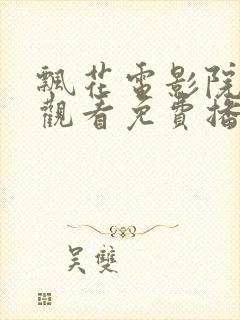 飄花電影院
觀看免費播
吴雙